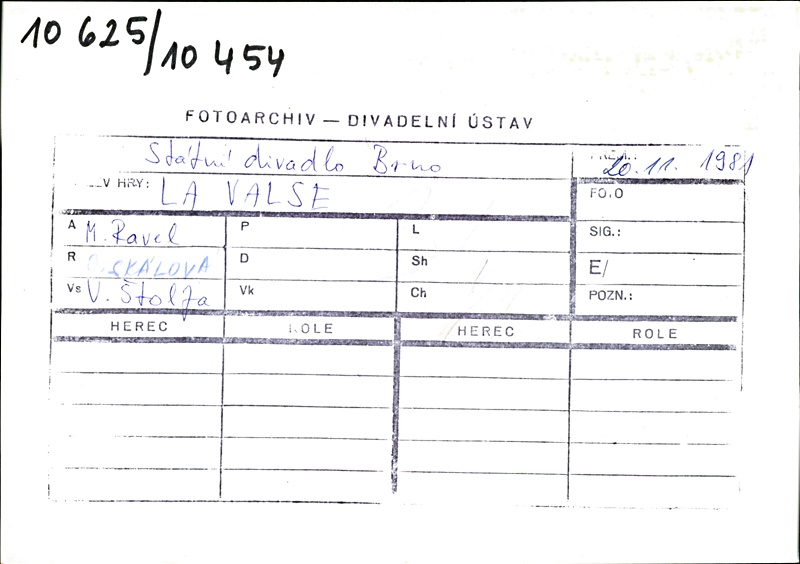 10 625/10 454
FOTOARCHIV — DIVADELNÍ ÚSTAV
Státní divadlo Brno
20.11. 1981
HRY: LA VALSE
A M. Ravel P L SIG.:
R SKÁLOVÁ D Sh E/
Vs V. Štolfa Vk Ch POZN.:
HEREC ROLE HEREC ROLE